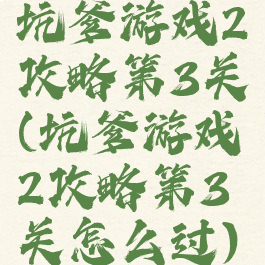 坑爹游戏2
攻略第3关
(坑爹游戏
2攻略第3
关怎么过)